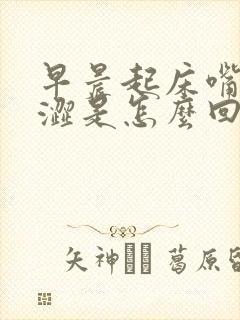 早晨起床嘴
澀是怎麼回
矢神 葛原